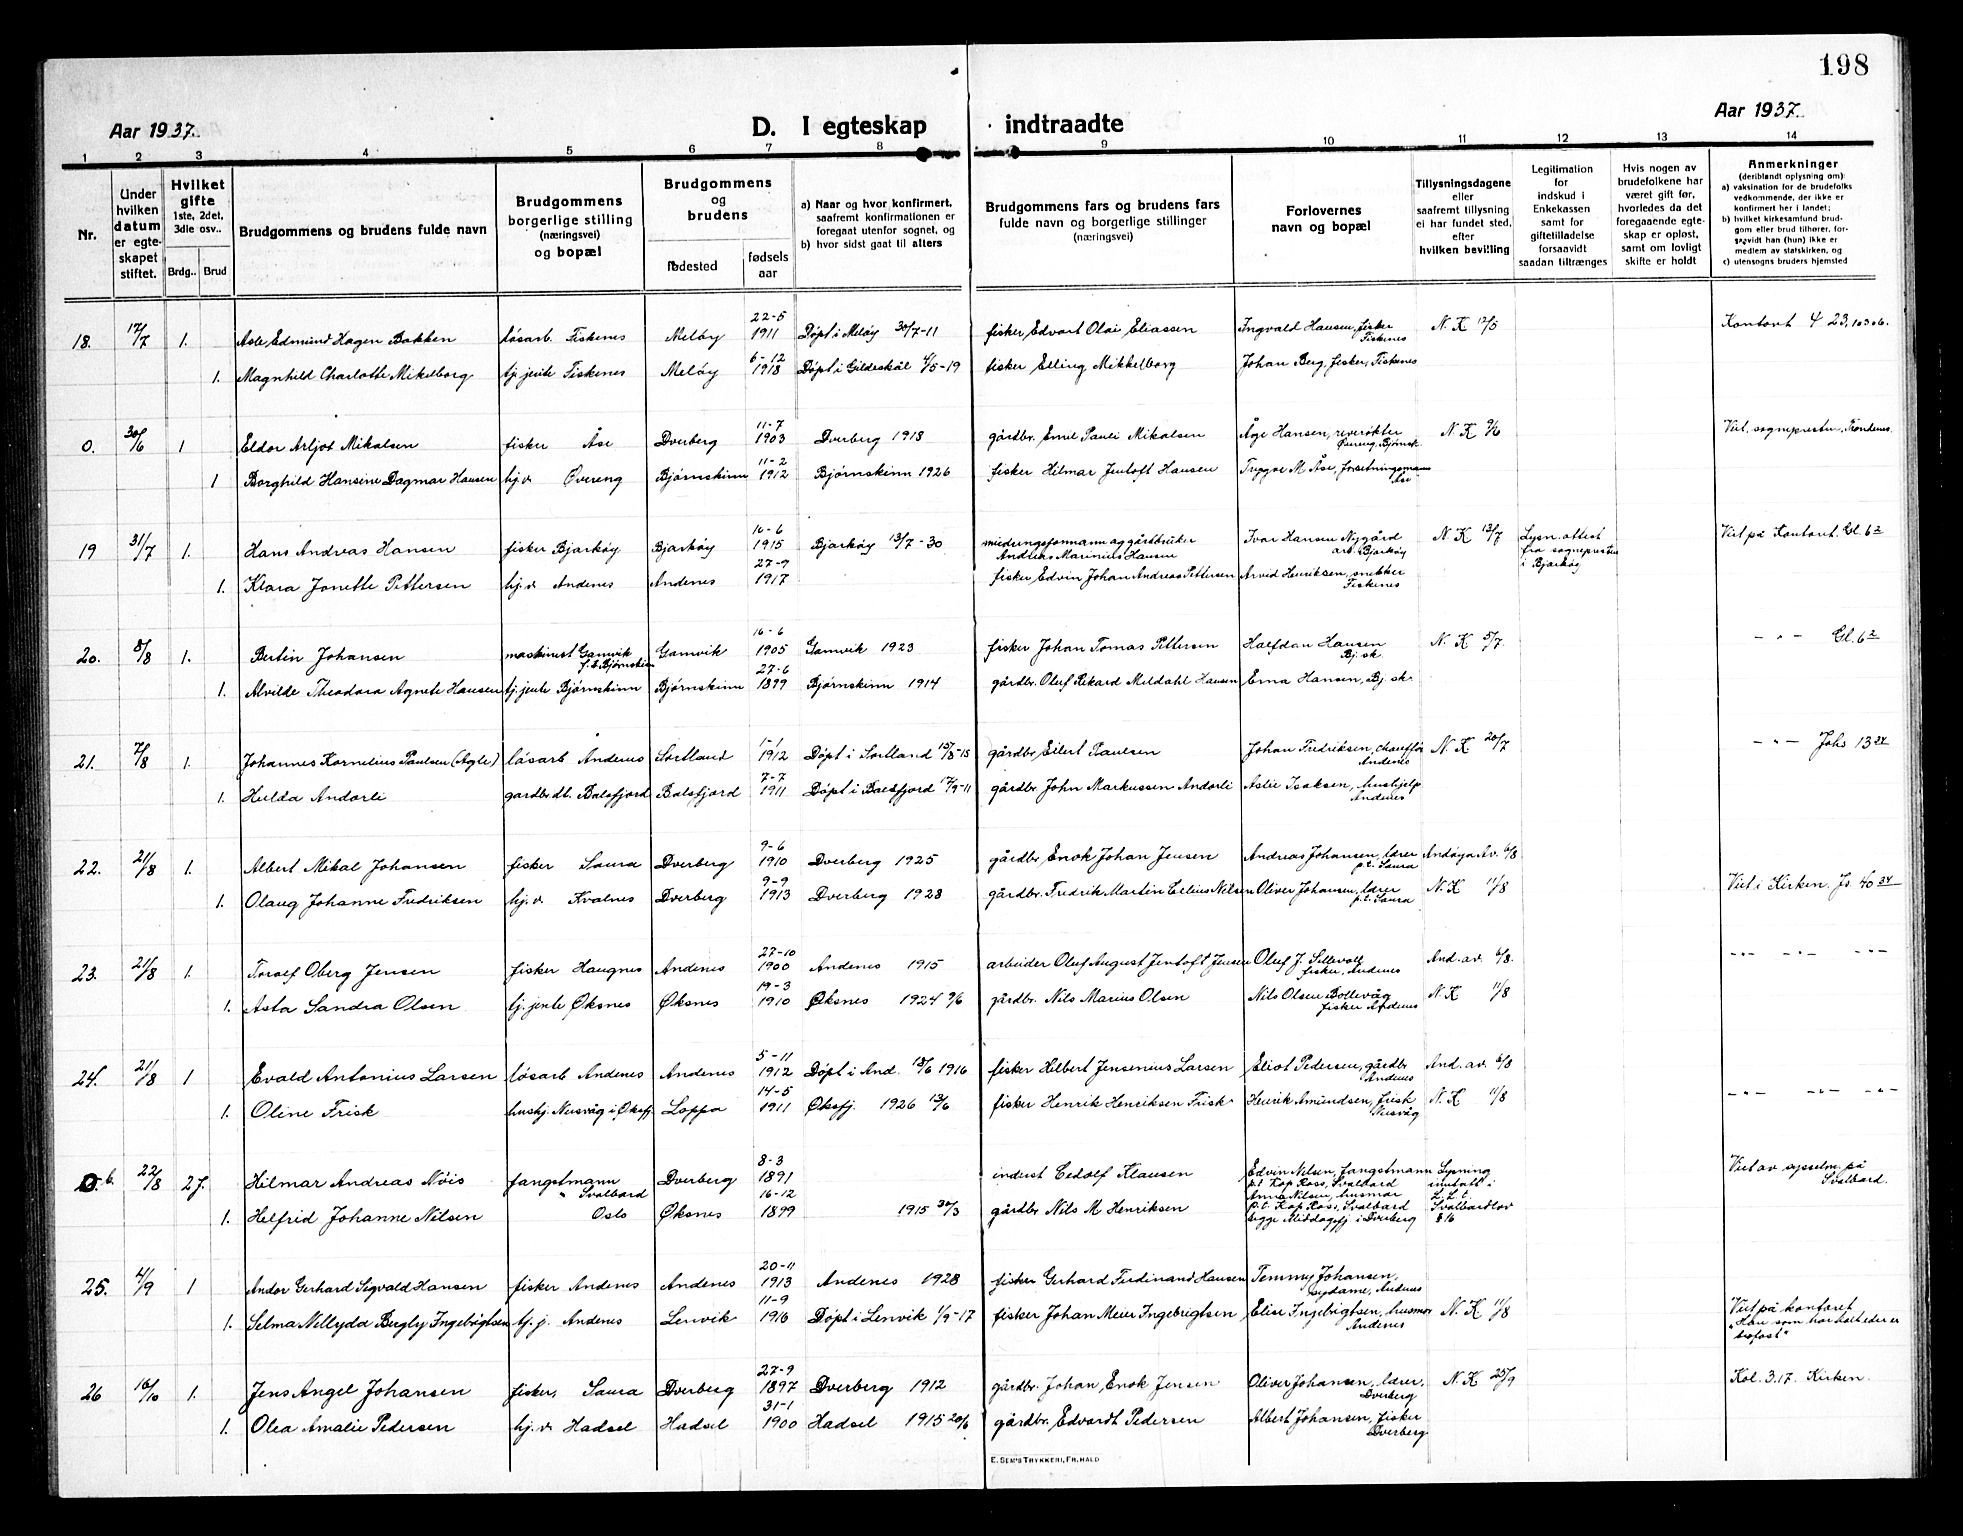 198
Aar 1937.
D. I egteskap indtraadte
Aar 1937.
1 2 3 4 5 6 7 8 9 10 11 12 13 14
Nr.
Under hvilken datum er egteskapet stiftet.
Hvilket gifte 1ste, 2det, 3die osv..
Brdg.. Brud
Brudgommens og brudens fulde navn
Brudgommens borgerlige stilling (næringsvei) og bopæl
Brudgommens og brudens
fødested
fødsels aar
a) Naar og hvor konfirmert, saafremt konfirmationen er foregaat utenfor sognet, og
b) hvor sidst gaat til alters
Brudgommens fars og brudens fars fulde navn og borgerlige stillinger (næringsvei)
Forlovernes navn og bopæl
Tillysningsdagene eller saafremt tillysning ei har fundet sted, efter hvilken bevilling
Legitimation for indskud i Enkekassen samt for giftetilladelse forsaavidt saadan tiltrænges
Hvis nogen av brudefolkene har været gift før, hvorledes da det foregaaende egteskap er opløst, samt om lovligt skifte er holdt
Anmerkninger (deriblandt oplysning om)
a) vaksination for de brudefolks vedkommende, der ikke er konfirmert her i landet;
b) hvilket kirkesamfund brudgom eller brud tilhører, forsaavidt han (hun) ikke er medlem av statskirken, og
c) utensogns bruders hjemsted
18. 17/7 1. Asle Edmund Hagen Bakken løsarb. Fiskenes Meløy 22-5 1911 Døpt i Meløy 30/7-11 fisker Edvart Olai Eliassen Ingvald Hansen, fisker Fiskenes N. K 12/5 Kontort 4 23, 10306.
1. Magnhild Charlotte Mikelborg tj. jente Fiskenes Meløy 6-12 1918 Døpt i Gildeskål 4/5-19 fisker Elling Mikkelborg Johan Berg, fisker, Fiskenes
0. 30/6 1 Eldor Arljot Mikalsen fisker Åse Dverberg 11-7 1903 Dverberg 1918 gårdbr. Emil Pauli Mikalsen Åge Hansen, reverøkter Øvereng, Bjørnsk N. K 2/6 Viet. sognepresten, Trondenes.
1 Borghild Hansine Dagmar Hansen hj.d Øvereng Bjørnskinn 11-2 1912 Bjørnskinn 1926 fisker Hilmar Jentoft Hansen Trygve M Åse, forretningsmann Åse
19 31/7 1. Hans Andreas Hansen fisker Bjarkøy Bjarkøy 10-6 1915 Bjarkøy 13/7-30 mudringsformann og gårdbruker Andreas Marinius Hansen Ivar Hansen Nygård arb. Bjarkøy N. K 13/7 Lysn. attest fra sognepresten i Bjarkøy Viet på Kontoret. Gl. 6 2
1. Klara Jonette Pettersen hj.d Andenes Andenes 27-9 1917 fisker Edvin Johan Andreas Pettersen Arvid Henriksen, snekker Fiskenes
20. 8/8 1. Bertin Johansen maskinist Gamvik f.t. Bjørnskinn Gamvik 16-6 1905 Gamvik 1923 fisker Johan Tomas Pettersen Halfdan Hansen Bj.sk. N. K 5/7. -"- Gl. 6 2
1. Alvilde Theodora Agnete Hansen tj. jente Bjørnskinn Bjørnskinn 27-6 1899 Bjørnskinn 1914 gårdbr. Oluf Rikard Mildahl Hansen Erna Hansen, Bj. sk.
21. 7/8 1. Johannes Kornelius Paulsen (Agle) løsarb Andenes Sortland 1-1 1912 Døpt i Sortland 15/8-15 gårdbr. Eilert Paulsen Johan Fredriksen, chauffør Andenes N. K 20/7 -"- Johs 13 24
1. Hulda Andorli gardbr.dt. Balsfjord Balsfjord 7-7 1911 Døpt i Balsfjord 17/9-11 gårdbr. John Markussen Andorli Aslie Isaksen, hushjelp Andenes
22. 21/8 1. Albert Mikal Johansen fisker Saura Dverberg 9-6 1910 Dverberg 1925 gårdbr. Enok Johan Jensen Andreas Johansen, lærer p.t. Saura Andøya Av. 6/8.
1. Olaug Johanne Fredriksen hj. d. Kvalnes Dverberg 9-9 1913 Dverberg 1928 gårdbr. Fredrik Martin Celius Nilsen Oliver Johansen, lærer p.t. Saura N. K 11/8 Viet i Kirken. Js. 40 34
23. 21/8 1. Toralf Oberg Jensen fisker Haugnes Andenes 27-10 1900 Andenes 1915 arbeider Oluf August Jentoft Jensen Oluf J. Sillevoll fisker, Andenes And. av. 6/8. -"- -"- -"-
1. Asta Sandra Olsen tj. jente Øksnes Øksnes 19-3 1910 Øksnes 1924 9/6 gårdbr. Nils Marius Olsen Nils Olsen Bollevåg fisker Andenes N. K 11/8
24. 21/8 1 Evald Antonius Larsen løsarb Andenes Andenes 5-11 1912 Døpt i And. 18/6 1916 fisker Hilbert Jensenius Larsen Eliot Pedersen, gårdbr Andenes And. av. 6/8
1. Oline Frisk hushj. Nusvåg i Øksfj. Loppa 14-5 1911 Øksfj. 1926 13/6 fisker Henrik Henriksen Frisk Henrik Amundsen, frisk Nusvåg N. K 11/8 -"- -"- -"-
0.b. 22/8 2 f. Hilmar Andreas Nøis fangstmann " Svalbard Dverberg 8-3 1891 indust Cedolf Klausen Edvin Nilsen, fangstmann p.t. Kap Ross, Svalbard Lysning unntatt i Viet av sysselm. på Svalbard.
1. Helfrid Johanne Nilsen Oslo Øksnes 16-12 1899 1915 30/3 gårdbr Nils M Henriksen Anna Nilsen, husmor p.t. Kap Ross, Svalbard begge Middagsfj. i Dverberg Svalbardlov § 16
25. 4/9 1 Andor Gerhard Sigvald Hansen fisker Andenes Andenes 20-11 1913 Andenes 1928 fisker Gerhard Ferdinand Hansen Temmy Johansen, sydame, Andenes
1. Selma Nellyda Bergly Ingebrigtsen tj. j. Andenes Lenvik 11-9 1916 Døpt i Lenvik 1/9-17 fisker Johan Meier Ingebrigtsen Elise Ingebrigtsen, husmor Andenes N. K 11/8 Viet på kontoret "Han som har kalt eder er trofast"
26 16/10 1. Jens Angel Johansen fisker, Saura Dverberg 27-9 1897 Dverberg 1912 gårdbr. Johan Enok Jensen Oliver Johansen, lærer, Dverberg N. K 25/9 Kol. 3.17. Kirken.
1. Olea Amalie Pedersen hj. d. Hadsel Hadsel 31-1 1900 Hadsel 1915 20/6 gårdbr. Edvardt Pedersen Albert Johansen, fisker Dverberg
E. SEM'S TRYKKERI, FR. HALD